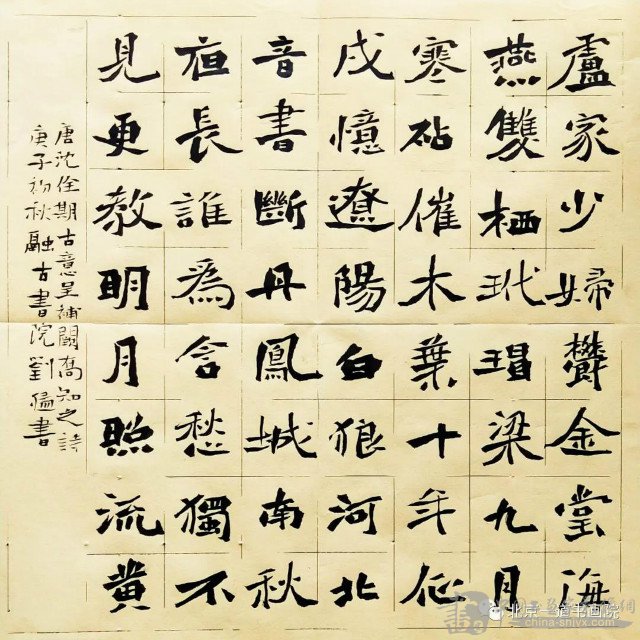 盧家少婦欝金堂海
燕雙栖玳瑁梁九月
寒砧催木葉十年征
戍憶遼陽白狼河北
音書斷丹鳳城南秋
夜長誰爲含愁獨不
見更教明月照流黄
唐沈佺期古意呈補闕喬知之詩
庚子初秋融古書院劉書
北京一书画院
www.china-shjyx.com